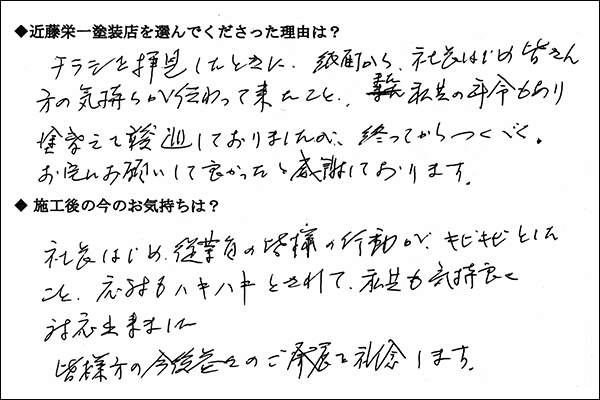 ◆近藤栄一塗装店を選んでくださった理由は？
チラシを拝見したときに、紙面から、社長はじめ皆さん
方の気持ちが伝わって来たこと、私共の年令もあり
塗装工で逡巡しておりましたが、終ってからつくづく、
お宅にお願いして良かったと感謝しております。
◆ 施工後の今のお気持ちは？
社長はじめ、従業員の皆様の行動が、キビキビとした
こと、応対もハキハキとされて、私共も気持良く
対応出来ました
皆様方の今後益々のご発展を祈念します。